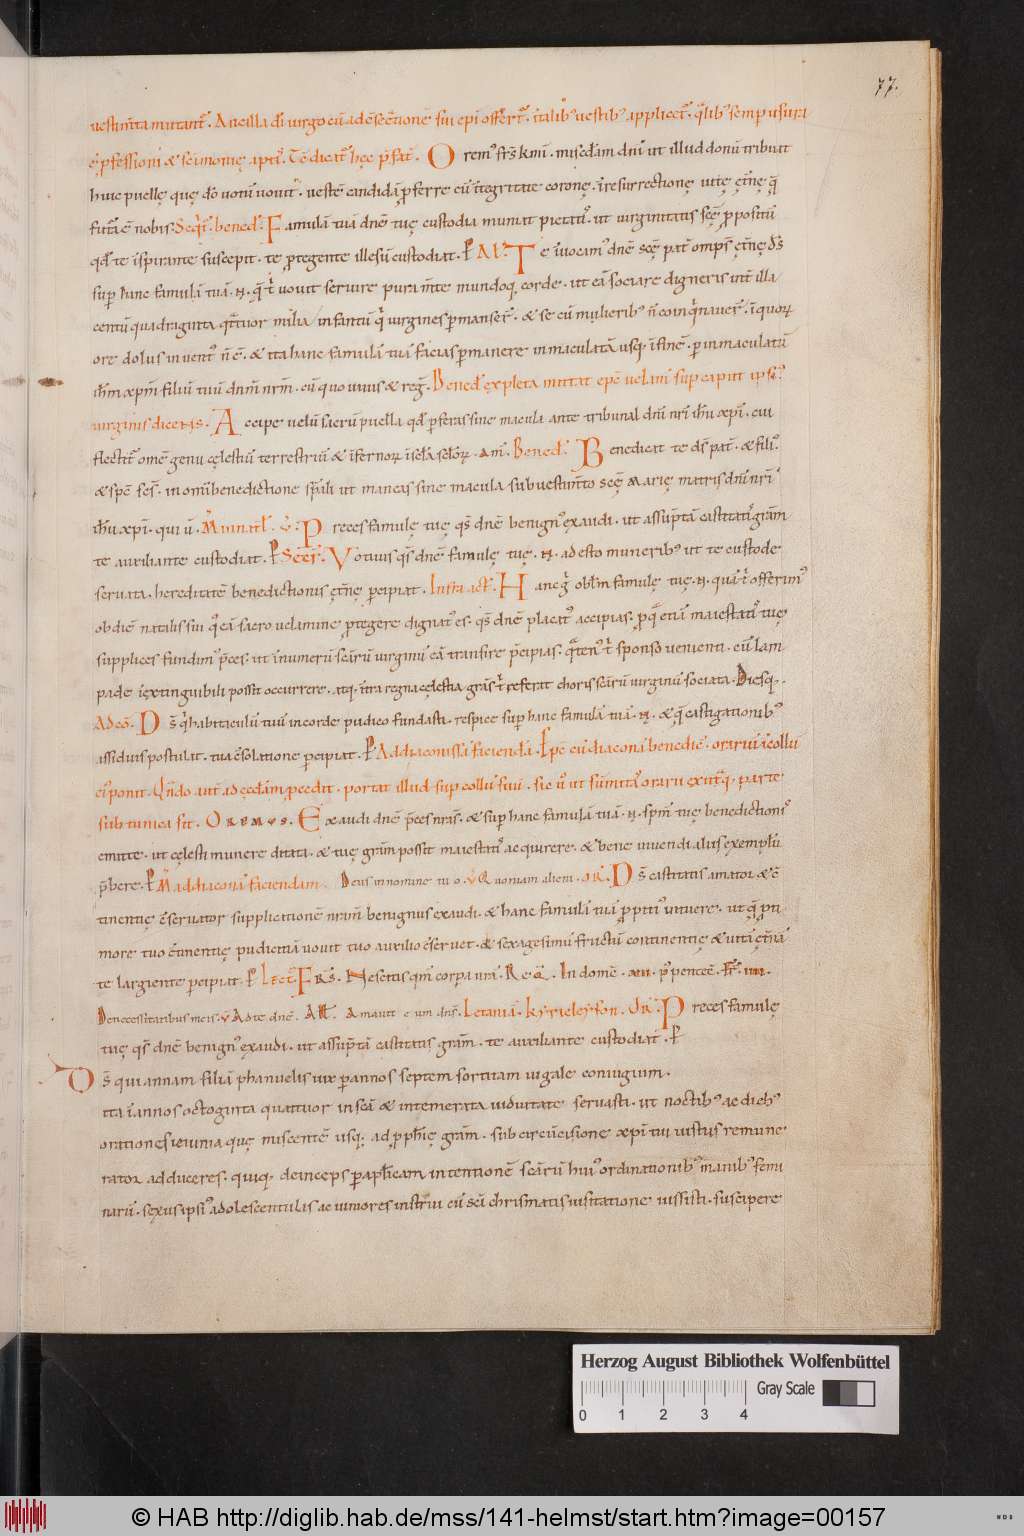 77.
vestim̄ta mutant᷒. Ancilla dī virgo cū ad c̄secrationē sui epī offert᷒. ī talib᷒ vestib᷒ applicet᷒. q̄lib᷒ semp usura
ē p̄fessioni & scīmonię apti᷒. Tc̄ dicat᷒ hęc p̄fat̄. Orem᷒ frs̄ km̄i. miscd̄am dnī ut illud donū tribuat
huic puellę quę dō votū vovit. vestē candidā p̄ferre cū integritate coronę. ī resurrectionę vitę ęt̄nę q̄
futā ē nobis. Seqt᷒. bened᷒. Famulā tuā dn̄e tuę custodia muniat pietati᷒. ut virginitatis scę̄ p̄positū
qđ te īspirante suscepit. te p̄tegente illesū custodiat. P̄ Al᷒. Te īvocam᷒ dn̄e scę̄ pat̄ omp̄s ęt̄nę ds̄
sup hanc famulā tuā. N. q̄ t᷒ vovit servire pura m̄te mundoq. corde. ut eā sociare digneris int̄ illa
centū quadraginta q̄ttuor milia infantū q᷒ virgines pmanser̄. & se cū mulierib᷒ n̄ coinq̄naver̄. ī quoꝝ
ore dolus invent᷒ n̄ ē. & ita hanc famulā tuā facias pmanere inmaculatā usq. ī finē. p inmaculatū
ih̄m xp̄m filiū tuū dn̄m nr̄m. cū quo vivis & reg᷒. Bened᷒ expleta mittat epē velam̄ sup caput ipsi᷒
virginis dicens. Accipe velū sacrū puella qđ pferas sine macula ante tribunal dnī nrī ih̄u xp̄i. cui
flectit᷒ omē genu cęlestiū terrestriū & īfernoꝝ ī scła scłoꝝ. am̄. Bened᷒. Benedicat te ds̄ pat̄. & fili᷒.
& spē sc̄s. in omī benedictione sp̄ali ut maneas sine macula sub vestim̄to scę̄ Marię matris dnī nrī
ih̄u xp̄i. qui ū. M̄ in natł. v̄. Preces famulę tuę qs̄ dn̄e benign᷒ exaudi. ut assūptā castitati᷒ grām
te auxiliante custodiat. P̄ Secr̄. Votivis qs̄ dn̄e famulę tuę. N. adesto munerib᷒ ut te custode
servata. hereditatē benedictionis ęt̄nę pcipiat. Infra act̄. Hanc g᷒ obłm famulę tuę. N. quā t᷒ offerim᷒
ob diē natalis sui q᷒ eā sacro velamine p̄tegere dignat᷒ es. qs̄ dn̄e placat᷒ accipias. p q̄ etiā maiestati᷒ tuę
supplices fundim᷒ p̄ces. ut ī numerū scārū virginū eā transire p̄cipias. q̄ten᷒ t᷒ sponso venienti. cū lam
pade īextinguibili possit occurrere. atq. intra regna cęlestia grās t᷒ referat choris scārū virginū sociata. Diesq.
Ad cō. Ds̄ q᷒ habitaculū tuū in corde pudico fundasti. respice sup hanc famulā tuā. N. & q̄ castigationib᷒
assiduis postulat. tua c̄solatione pcipiat. P̄ Ad diaconissā faciendā. Epē cū diaconā benedic̄. orariū ī collū
ei᷒ ponit. Qn̄do aut ad ecctām pcedit. portat illud sup collū suū. sic ū ut sūmitas orarii ex utq. parte
sub tunica sit. Oremus. Exaudi dn̄e p̄ces nr̄as. & sup hanc famulā tuā. N. spm̄ tuę benedictionis
emitte. ut cęlesti munere ditata. & tuę grām possit maiestati᷒ acquirere. & bene vivendi aliis exemplū
p̄bere. P̄ M̄ ad diaconā faciendam. Deus in nomine tuo. v̄ Quoniam alieni. Or᷒. Ds̄ castitatis amator & c̄
tinentię c̄servator supplicationē nr̄am benignus exaudi. & hanc famulā tuā p̄piti᷒ intuere. ut q̄ p ti
more tuo c̄tinentię pudicitiā vovit tuo auxilio c̄servet. & sexagesimū fructū continentię & vitā ęt̄nā
te largiente pcipiat. P̄ Lect̄. Frs̄. Nescitis qm̄ corpa vr̄a. Req̄. In domē. XVI. p᷒ pentec̄. Fr̄. IIII.
De necessitatibus meis. v̄ Ad te dn̄e. Alł. Amavit eum dns̄. Letaniā. Kyrieleyson. Or᷒. Preces famulę
tuę qs̄ dn̄e benign᷒ exaudi. ut assūptā castitatis grām. te auxiliante custodiat. P̄
Ds̄ qui annam filiā phanuelis vix p annos septem sortitam iugale coniugium.
ita ī annos octoginta quattuor in scā & intemerata viduitate servasti. ut noctib᷒ ac dieb᷒
orationes ieiunia quę miscentē usq; ad pph̄ię grām. sub circūcisione xp̄i tui iustus remune
rator adduceres. quiq. deinceps p apłicam intentionē scārū hui᷒ ordinationib᷒ manib᷒ femi
narū. sexus ipsi᷒ adolescentulis ac iuniores instrui cū scī chrismatis visitatione iussisti. suscipere
Herzog August Bibliothek Wolfenbüttel
Gray Scale
0 1 2 3 4
© HAB http://diglib.hab.de/mss/141-helmst/start.htm?image=00157